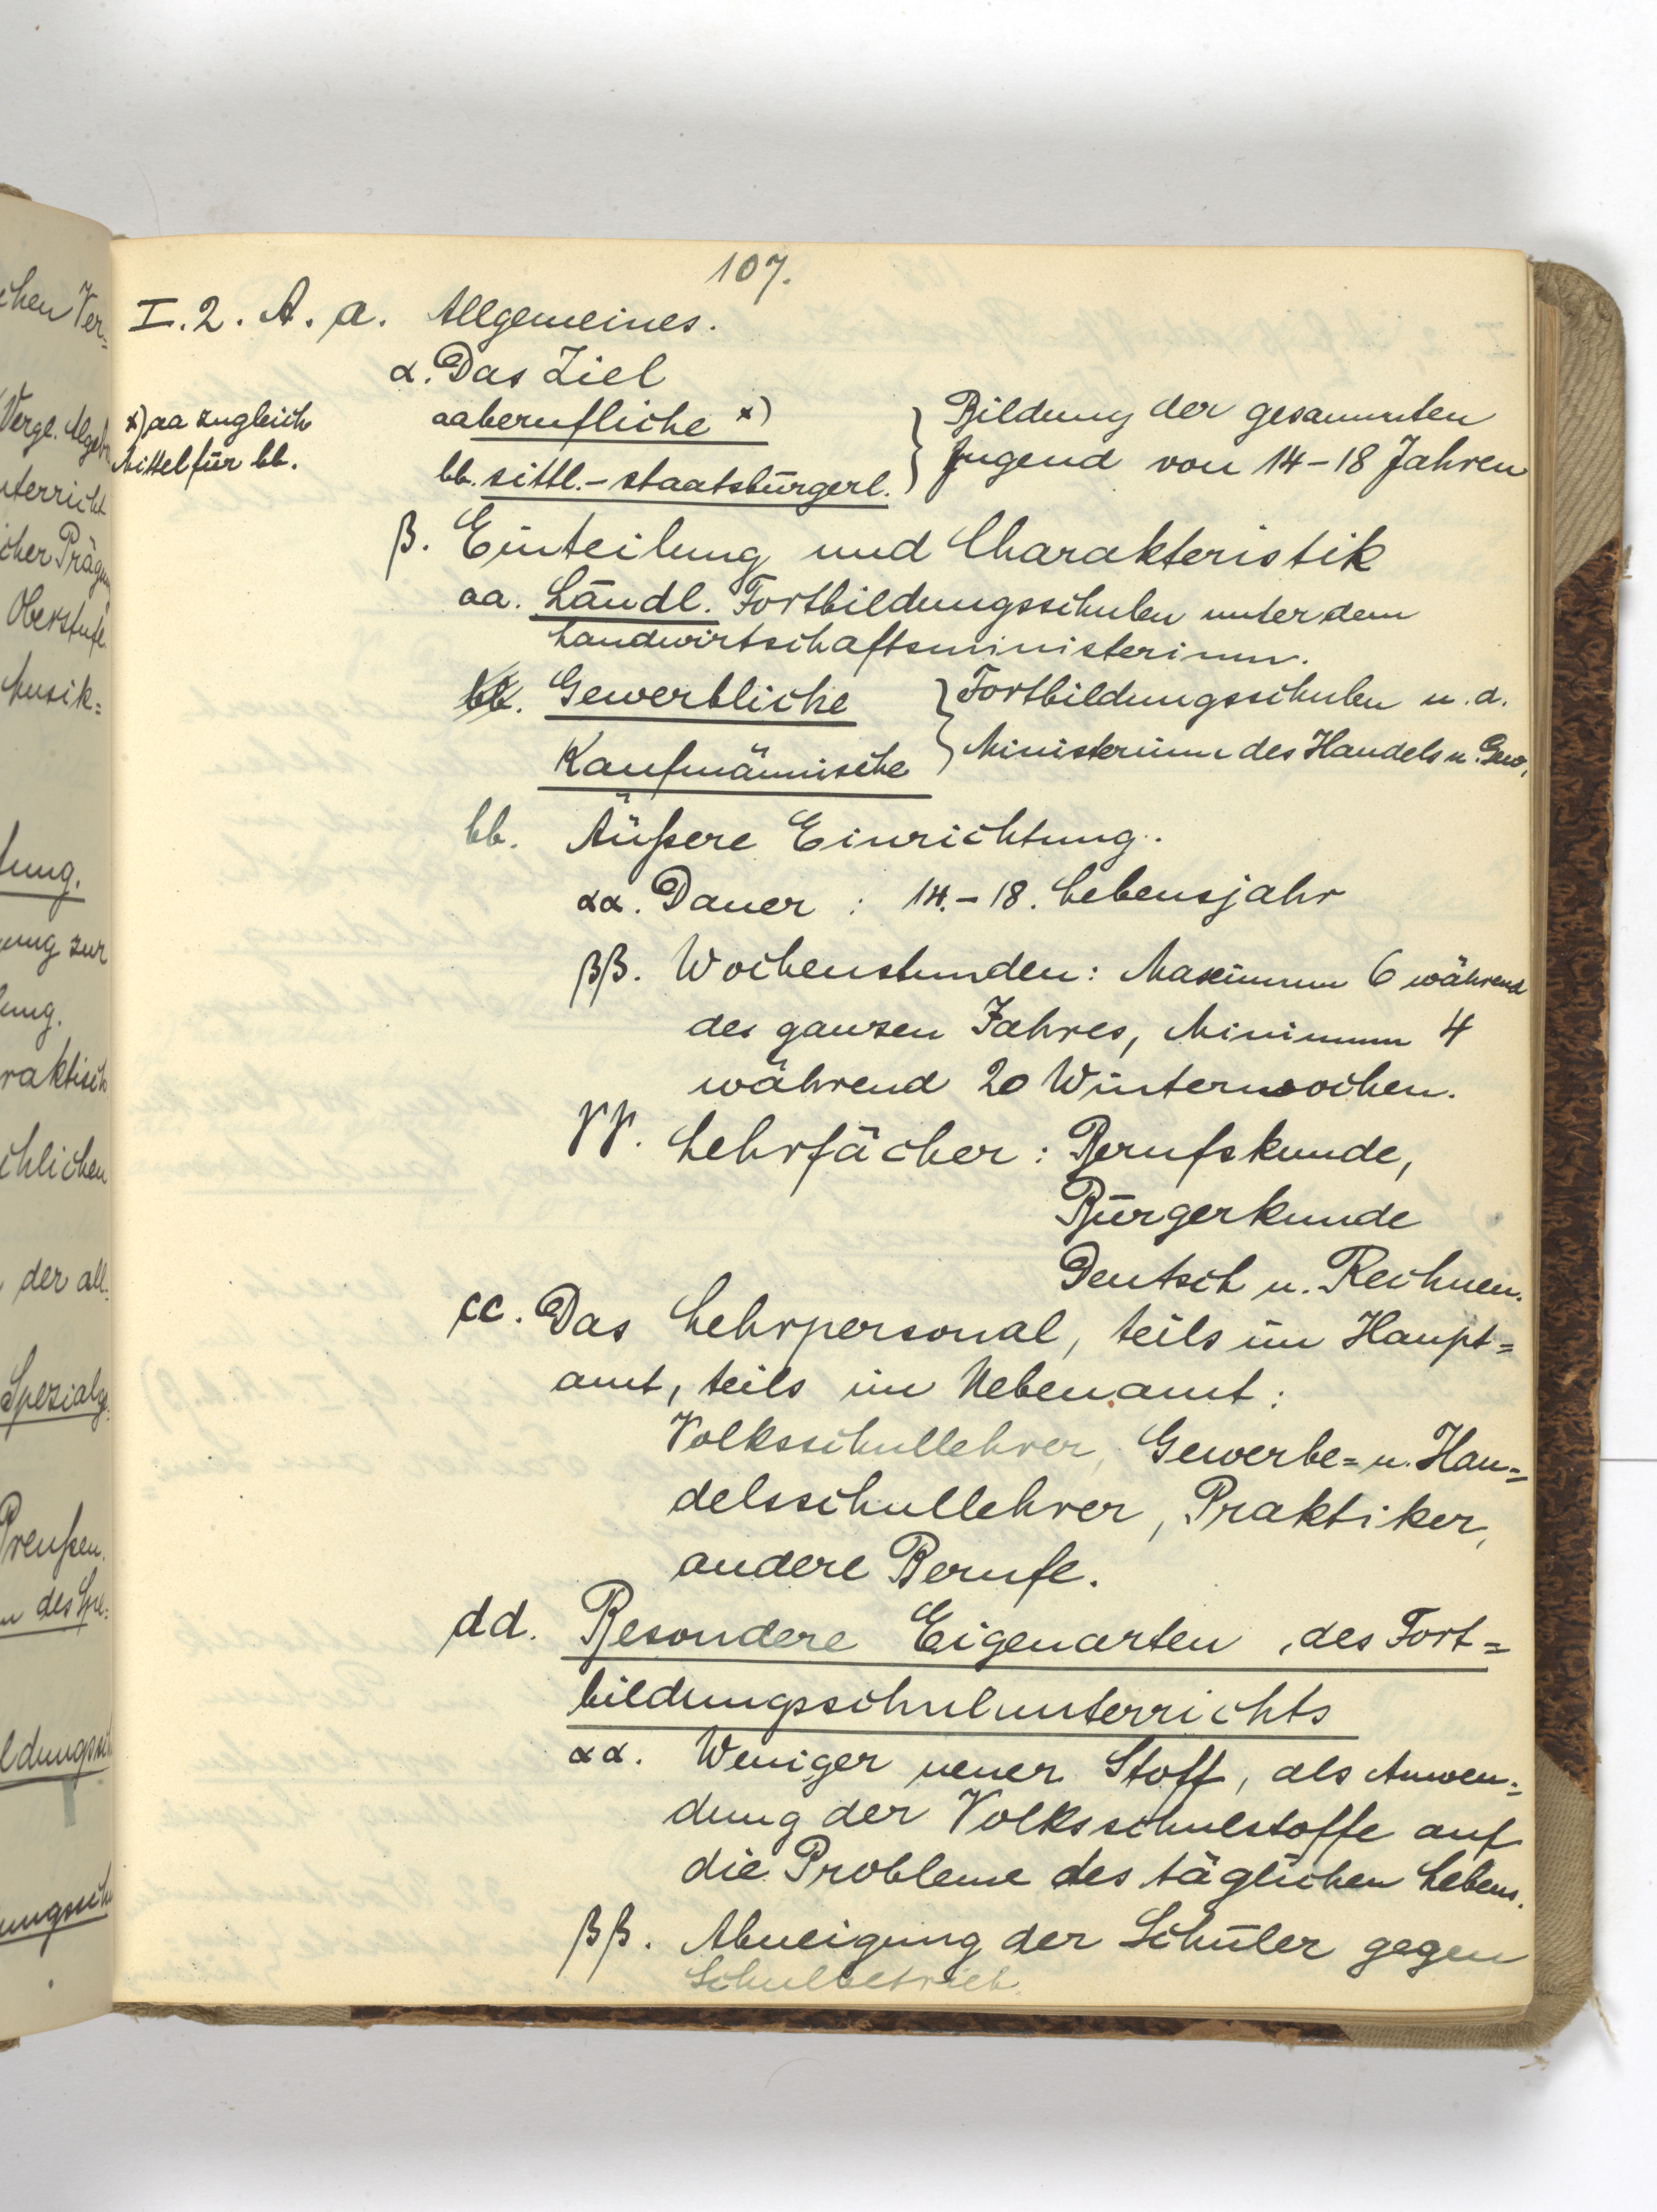 107.
I. 2. A. a. Allgemeines.
α. Das Ziel
x) aa zugleich
Mittel für bb.
aa berufliche x)
bb. sittl.- staatsbürgerl.
} Bildung der gesammten
Jugend von 14-18 Jahren
β. Einteilung und Charakteristik
aa. Ländl. Fortbildungsschulen unter dem
Landwirtschaftsministerium.
bb. Gewerbliche
Kaufmännische
} Fortbildungsschulen u. d.
Ministerium des Handels u. Gew.
bb. Äußere Einrichtung.
αα. Dauer : 14.-18. Lebensjahr
ββ. Wochenstunden: Maximum 6 während
des ganzen Jahres, Minimum 4
während 20 Winterwochen.
γγ. Lehrfächer: Berufskunde,
Bürgerkunde
Deutsch u. Rechnen.
cc. Das Lehrpersonal, teils im Haupt=
amt, teils im Nebenamt:
Volksschullehrer, Gewerbe= u. Han=
delsschullehrer, Praktiker,
andere Berufe.
dd. Besondere Eigenarten des Fort=
bildungsschulunterrichts
αα. Weniger neuer Stoff, als Anwen=
dung der Volksschulstoffe auf
die Probleme des täglichen Lebens.
ββ. Abneigung der Schüler gegen
Schulbetrieb.
chen Ver=
Vergl.
nterricht
icher
Oberstufe
Musik=
tung.
ung zur
ung.
raktisch
chlichen
der all.
Preußen.
ldungssch
ungssch